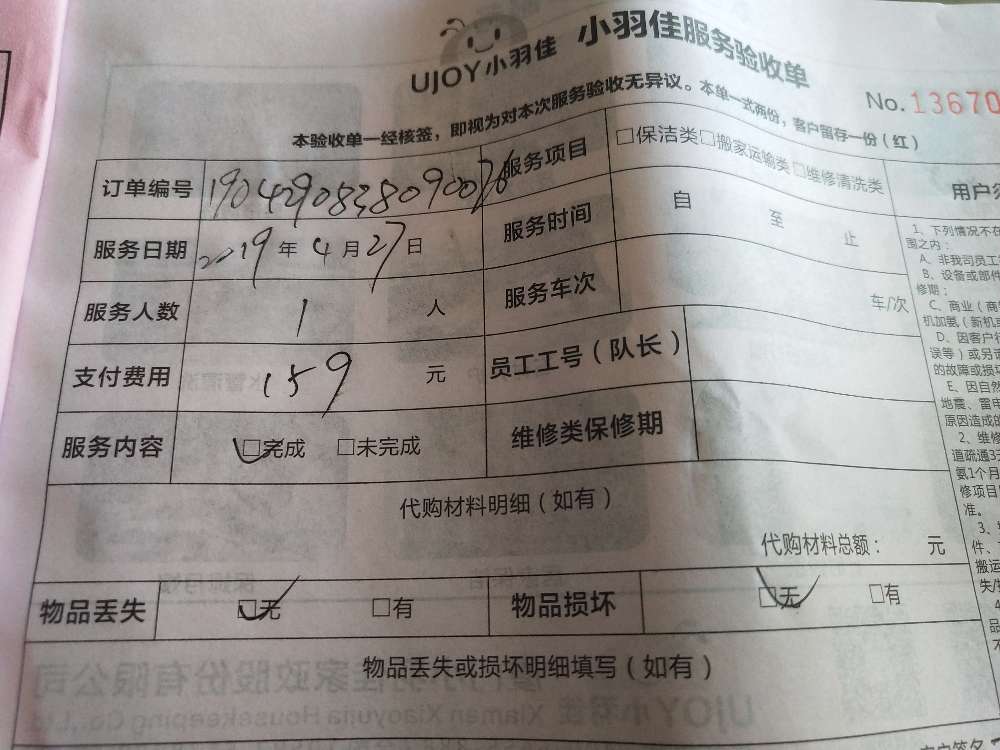 UJOY小羽佳 小羽佳服务验收单
No.13670
本验收单一经核签，即视为对本次服务验收无异议。本单一式两份，客户留存一份（红）
订单编号 服务项目 □保洁类□搬家运输类□维修清洗类
服务日期 2019年4月27日 服务时间 自 至 止
服务人数 1 人 服务车次 车/次
支付费用 159 元 员工工号（队长）
服务内容 □完成 □未完成 维修类保修期
代购材料明细（如有）
代购材料总额： 元
物品丢失 □无 □有 物品损坏 □无 □有
物品丢失或损坏明细填写（如有）
用户须
1、下列情况不在
围之内：
A、非我司员工
B、设备或部件
修期；
C、商业（商
机加氨（新机
D、因客户
误等）或另
的故障或损坏
E、因自然
地震、雷电
原因造成的
2、维修
道疏通3天
氨1个月
修项目
准。
3、
件、
搬运
失/
品